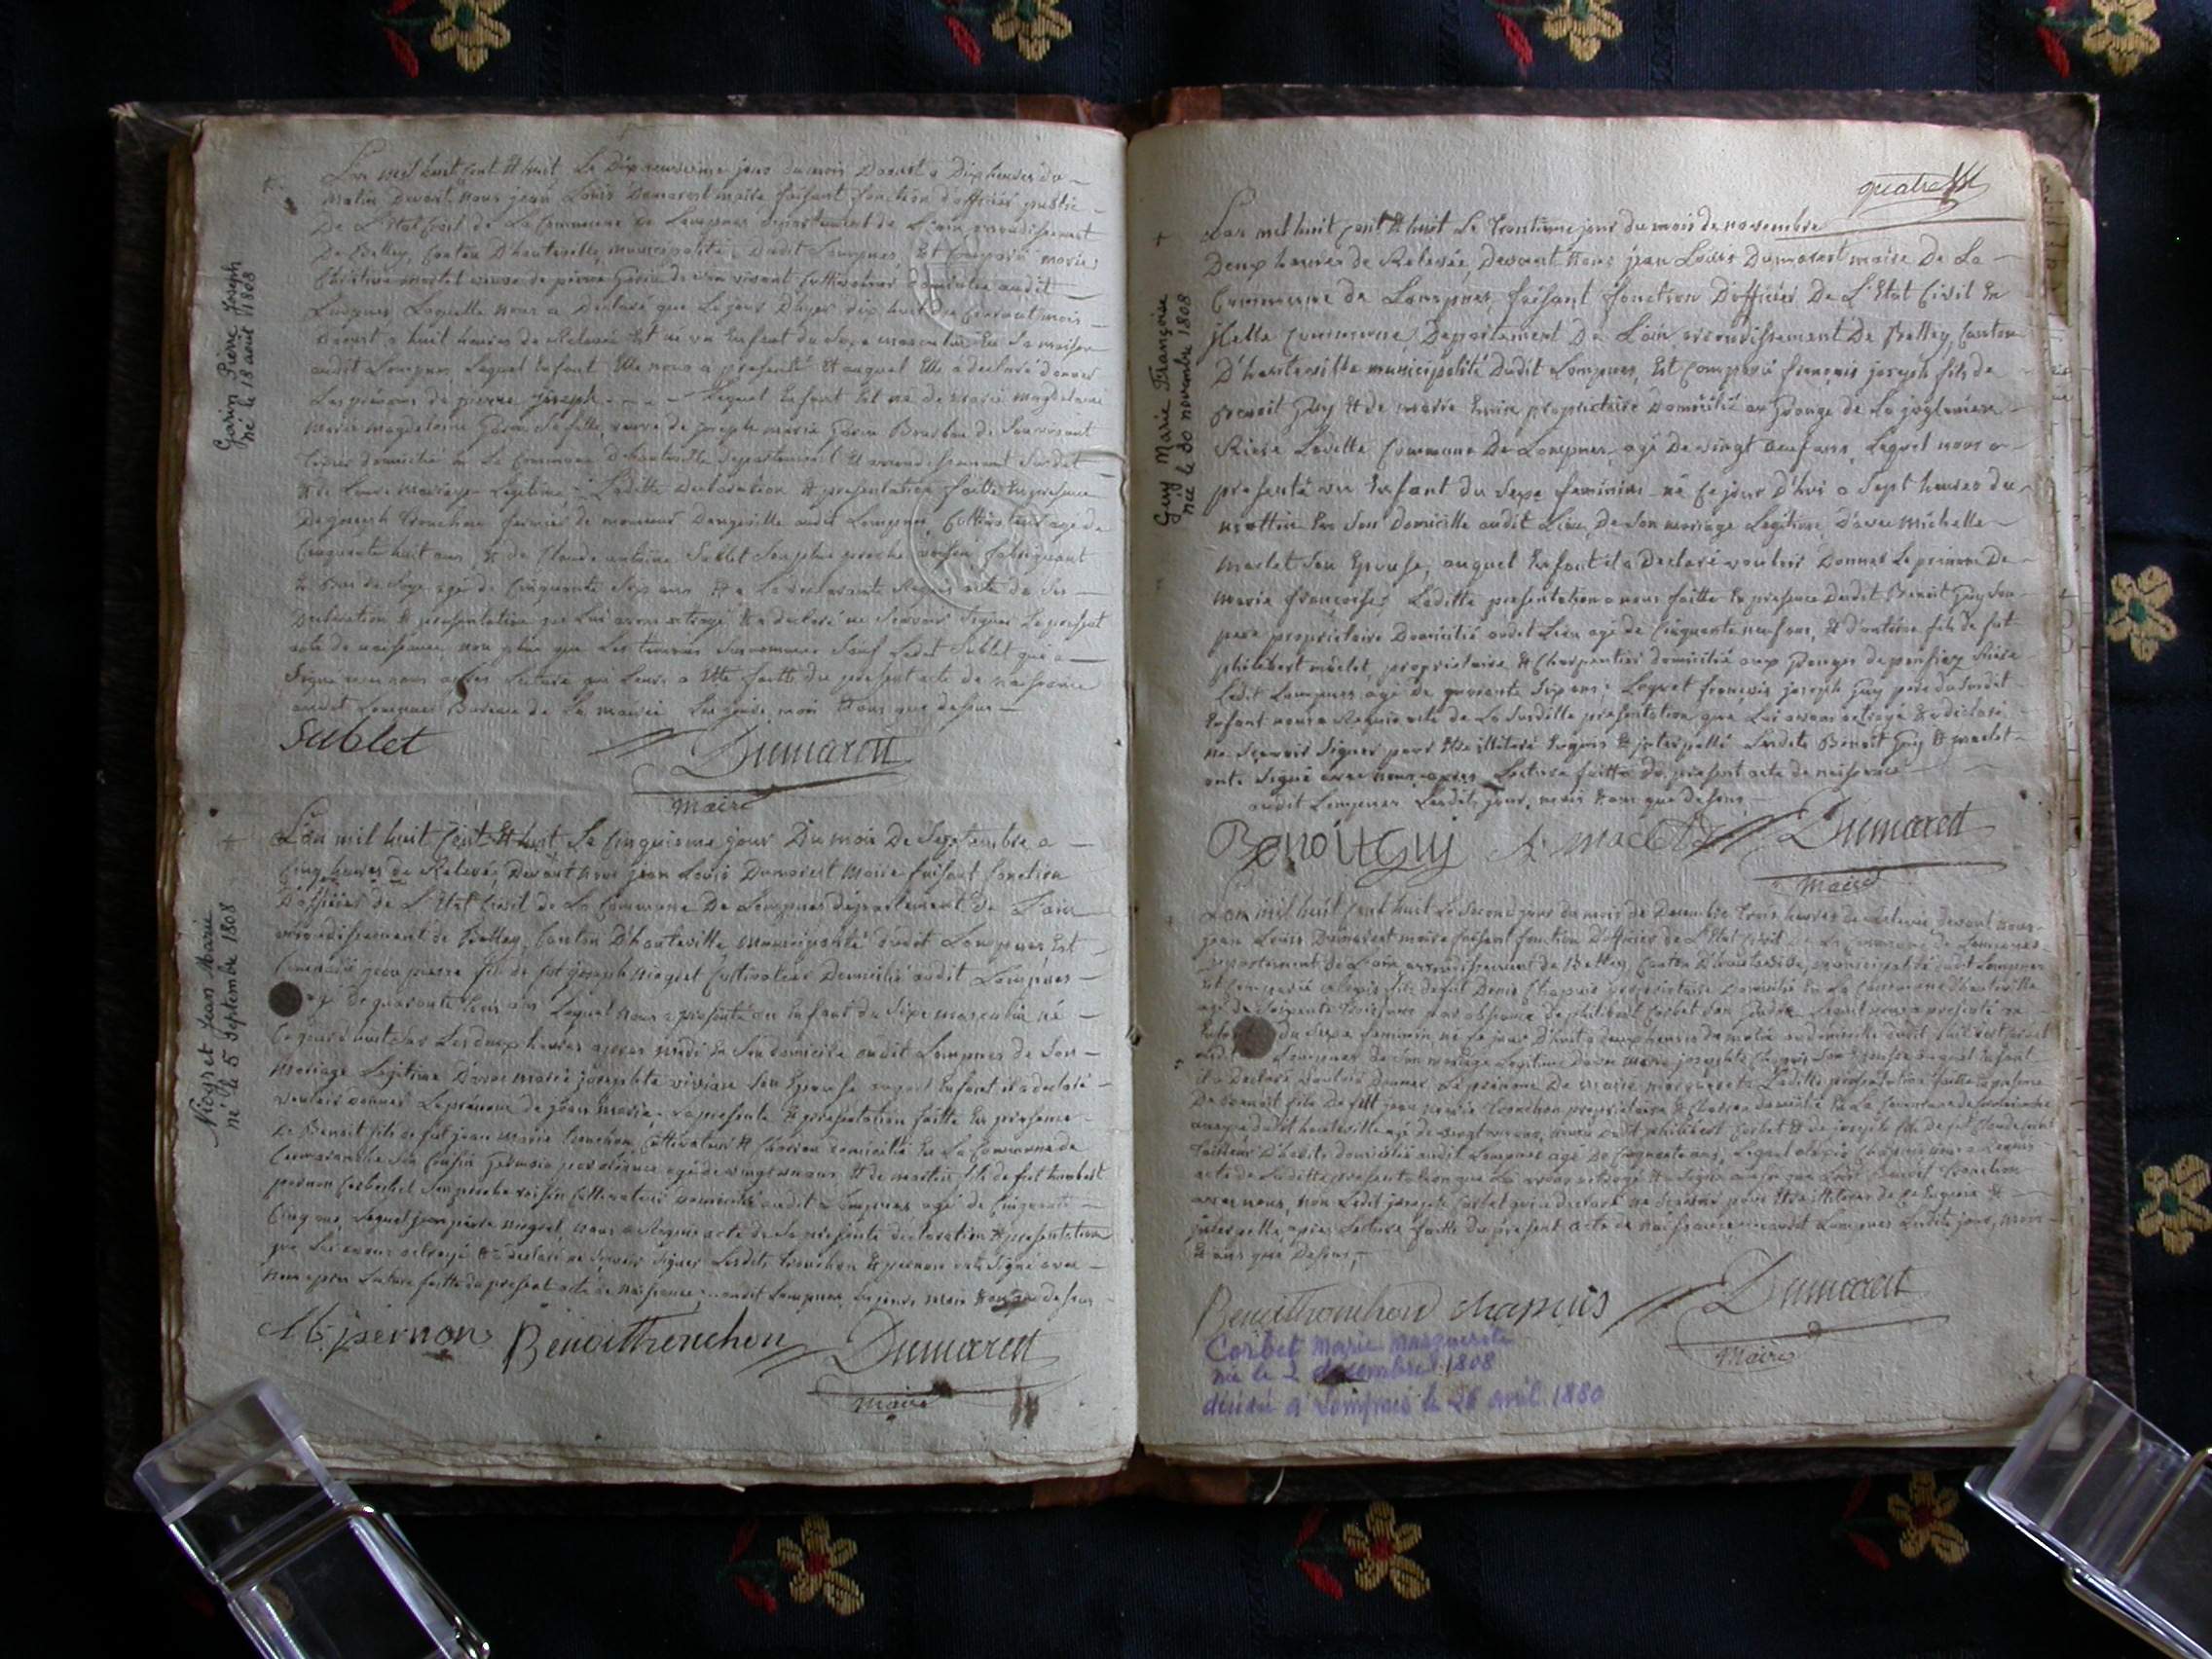 Garin Pierre Joseph
né le 18 août 1808
L'an mil huit Cent & huit Le Dix neuvieme jour du mois Daoust a Dix heures du
Matin Devant Nous jean Louis Dumarest maire faisant fonction d'officier public
De L'Etat Civil de La Commune de Lompnes département de L'ain arrondissement
De Belley, Canton D'hauteville, municipalité Dudit Lompnes, Est Comparu marie
Christine veuve de pierre Garin de son vivant Cultivateur domiciliée audit
Lompnes Laquelle nous a Declaré que Le jour D'hyer dix huit du Courant mois
Daoust a huit heures de Relevée Est né un Enfant du Sexe masculin En Sa maison
audit Lompnes Lequel Enfant Elle nous a presenté & auquel Elle a declaré donner
Les prénoms de pierre joseph Lequel Enfant Est né de marie magdelaine
Marie magdelaine Garin Sa fille, veuve de joseph marie Garin de Son vivant
domicilié En La Commune d'hauteville departement & arrondissement Susdit
& de Leur mariage Legitime. Laditte Declaration & presentation faitte En presence
De joseph Tronchon fermier de monsieur Dangeville audit Lompnes, Cultivateur agé de
Cinquante huit ans, & de Claude antoine Sublet Son plus proche voisin fabriquant
de Bas de Soye agé de Cinquante Sept ans & a La declarante Requis acte de Ses
Declaration & presentation que Lui avons octroyé & a declaré ne Scavoir Signer Le present
acte de naissance, non plus que Les temoins Surnommés Sauf Ledit Sublet qui a
Signé avec nous après Lecture qui Leur a Etté faitte du present acte de naissance
audit Lompnes Bureau de La mairie Les jours, mois & ans que dessus
Sublet Dumarest
maire
Niogret Jean Marie
né le 5 septembre 1808
L'an mil huit Cent & huit Le Cinquieme jour Du mois De Septembre a
Cinq heures de Relevée, Devant nous jean Louis Dumarest Maire faisant fonction
D'officier de L'Etat Civil de La Commune De Lompnes département de L'ain
arrondissement de Belley, Canton D'hauteville municipalité dudit Lompnes, Est
Comparu jean pierre fils de fut joseph niogret Cultivateur Domicilié audit Lompnes
agé De quarante trois ans Lequel nous a présenté un Enfant du Sexe masculin né
Cejourd'huit Sur Les deux heures apres midi En Son domicile audit Lompnes de Son
Mariage Légitime D'avec marie josephte vivian Son Epouse auquel Enfant il a declaré
vouloir donner Le prénom de jean marie, La presente & presentation faitte En presence
De Benoit fils de fut jean marie Tronchon, Cultivateur & domicilié En La Commune de
Cormaranche Son Cousin Germain agé de vingt un ans & de fils de fut humbert
pernon Son proche voisin Cultivateur domicilié audit Lompnes agé de Cinquante
Cinq ans, Lequel jean pierre niogret nous a Requis acte de La presente declaration & presentation
que Lui avons octroyé & a declaré ne Scavoir Signer Lesdits tronchon & pernon ont Signé avec
Nous après Lecture faitte du present acte de naissance audit Lompnes Les jours, mois & an que dessus
pernon Benoit tronchon Dumarest
maire
quatre
Guy Marie Françoise
née le 30 novembre 1808
L'an mil huit Cent & huit Le Trentieme jour du mois de novembre
Deux heures de Relevée, Devant Nous jean Louis Dumarest maire De La
Commune de Lompnes, faisant fonction D'officier De L'Etat Civil En
jcelle Commune, Departement De L'ain arrondissement De Belley, Canton
D'hauteville municipalité Dudit Lompnes, Est Comparu françois joseph fils de
Benoit Guy & de marie propriétaire Domicilié au Grange de La
Riere Laditte Commune De Lompnes, agé De vingt neuf ans, Lequel nous a
presenté un Enfant du Sexe feminin né Ce jour D'hui a Sept heures du
mattin En Son Domicille audit Lieu, De Son mariage Legitime, D'avec Michelle
Maclet Son Epouse; auquel Enfant il a Declaré vouloir Donner Le prénom De
Marie françoise; Laditte presentation a nous faitte En presence Dudit Benoit Guy Son
pere propriétaire Domicilié audit Lieu agé de Cinquante neuf ans, & d'antoine fils de fut
philibert maclet, propriétaire & Charpentier domicilié aux Granges de Riere
Ledit Lompnes agé De quarante Six ans. Lequel françois joseph Guy pere du Susdit
Enfant nous a Requis acte de La Susditte presentation, que Lui avons octroyé & a declaré
ne Scavoir Signer pour Etre illitéré Enquis & interpellé. Lesdits Benoit Guy & maclet
onts Signé avec nous après Lecture faitte du present acte de naissance
audit Lompnes Lesdits jour, mois & an que dessus
Benoit Guy A. maclet Dumarest
maire
L'an mil huit Cent huit Le Second jour du mois de Decembre Trois heures de Relevée devant nous
jean Louis Dumarest maire faisant fonction D'officier de L'Etat Civil De La Commune de Lompnes
Departement de L'ain arrondissement de Belley, Canton D'hauteville, municipalité dudit Lompnes
Est Comparu fils de fut Denis Chapuis propriétaire Domicilié En La Commune d'hauteville
agé de Soixante Trois ans par absence de philibert Corbet Son Gendre Lequel nous a presenté un
Enfant du Sexe feminin né Ce jour D'huit a deux heures du matin au domicille dudit philibert Corbet
Ledit Lompnes de Son mariage Legitime D'avec Marie josephte Chapuis Son Epouse auquel Enfant
il a Declaré vouloir Donner Le prénom De marie marguerite Laditte presentation faitte En presence
De benoit fils De futt jean marie Tronchon propriétaire & domicilié En La Commune de Cormaranche
agé de vingt un ans, dudit philibert Corbet & de joseph fils de fut Claude
Tailleur D'habits, domicilié audit Lompnes agé De Cinquante ans, Lequel Chapuis nous a Requis
acte de Laditte presentation que Lui avons octroyé & a Signé ainsi que Ledit Benoit Tronchon
avec nous, non Ledit joseph Corbet qui a declaré ne Scavoir pour Etre illitéré de ce Enquis &
interpellé, après Lecture faitte du present acte de naissance audit Lompnes Lesdits jour, mois
& ans que Dessus,
Benoit tronchon chapuis Dumarest
maire
Corbet Marie Marguerite
née le 2 décembre 1808
décédé à Lompnes le 26 avril 1880